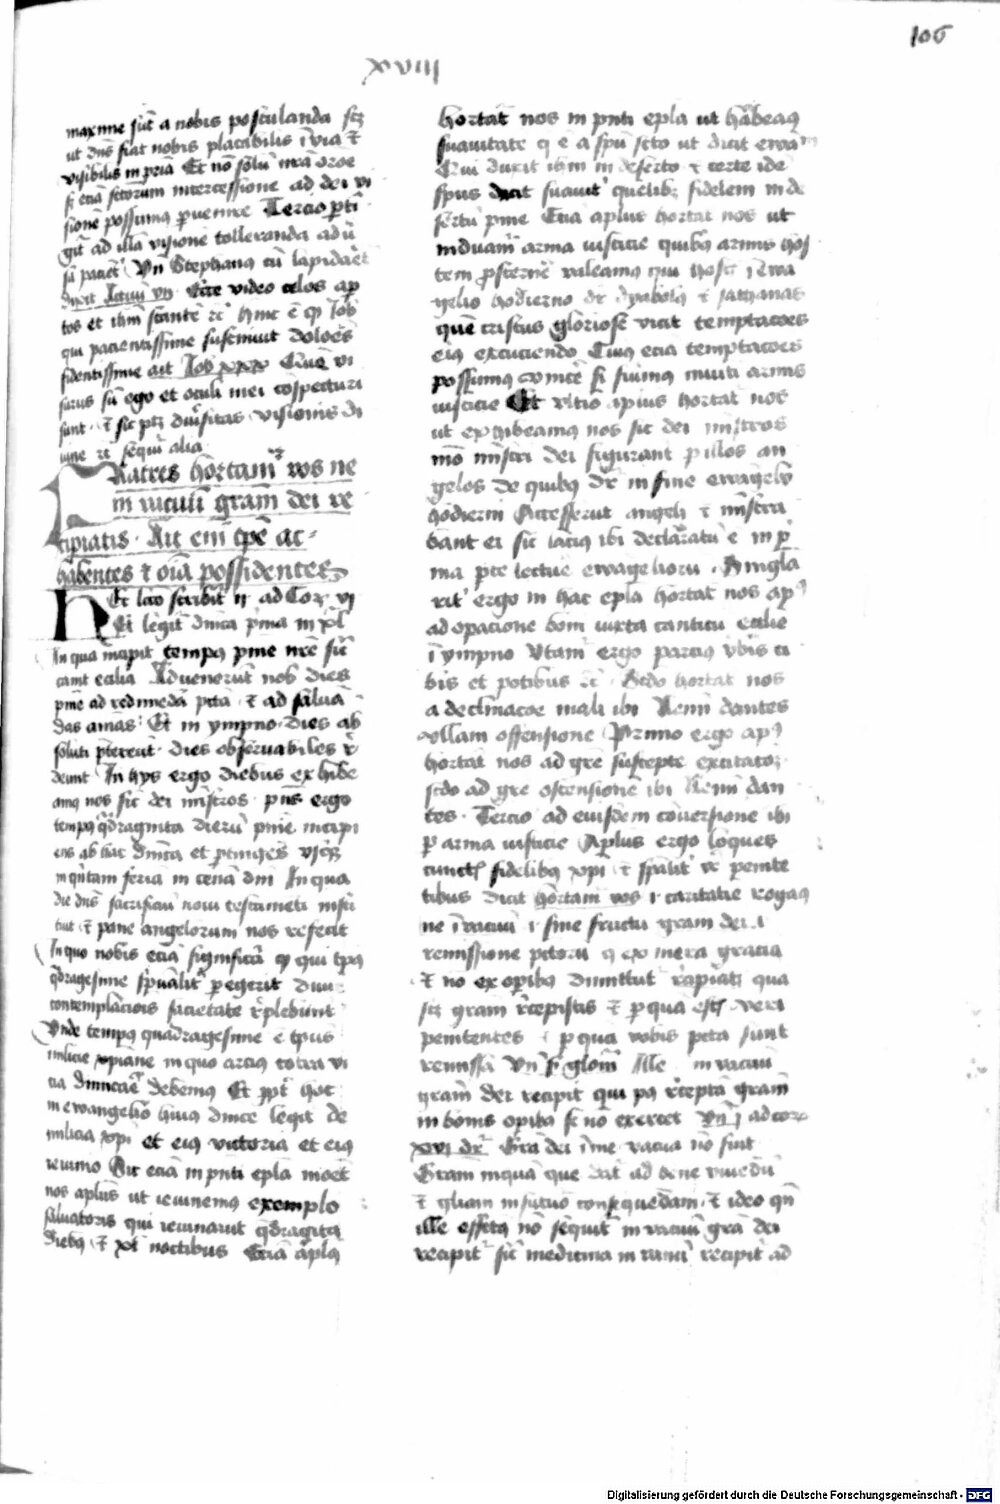 106
xviii
maxime sūt a nobis postulanda scz
ut dn̄s fiat nobis placabilis ī via ⁊
visibilis in prīa Et nō solū mēa or̄oe
sꝫ eciā sctorum intercessione ad dei vi
sionē possumꝰ ꝑuenire Tercio ꝑti
git ad illā visionē tolleranda adū
sū pacēt Vn̄ Stephanꝰ cū lapidaēt
dixit Actuū vii Ecce video celos ap
tos et ihm̄ stantē ꝛc̄ hinc ē ꝙ Job
qui pacientissime sustinuit doloēs
fidentissime ait Job xxx Quē vi
surus sū ego et oculi mei cōspecturi
sunt ⁊ sic ptꝫ diūsitas visionis di
uine ꝛc̄ sequi alia
Fratres hortam̄ vos ne
in vacuū gram̄ dei re
cipiatis Ait em̄ tp̄e ac
habentes ⁊ oīa possidentes
Hec lcō scribit̄ ii ad Cor vi
Et legit̄ dnica p̄ma in xl
In qua incipit tempꝰ pn̄ie nr̄e sic̄
canit ecclīa Aduenerūt nob dies
pn̄ie ad redimēda pctā ⁊ ad saluā
das aīmas Et in ympno dies ab
soluti p̄tereūt dies obseruabiles r̄
deunt In hijs ergo diebus exhibe
amꝰ nos sic dei mīstros pn̄s ergo
tempꝰ q̄dragīnta dierū pn̄ie incipi
ens ab hac dn̄ica et ꝑtinges vsqꝫ
in q̄ntam feria in cena dn̄i In qua
die dn̄s sacrificiū noui testamēti īsti
tuit ⁊ pane angelorum nos refecit
In quo nobis eciā significat̄ ꝙ qui tp̄us
q̄dragesime spūalit̄ ꝑegerit diuīe
contemplacionis sacietate r̄plebunt̄
Vnde tempus quadragesime ē tp̄us
milicie xpiāne in quo arcius contra vi
cia dimicāe debemꝰ Et ꝓpt̄ hoc
in ewangelio huiꝰ dnīce legit̄ de
milicia xp̄i et eiꝰ victoria et eiꝰ
ieiunio Ait eciā in pn̄ti epl̄a monet
nos apl̄us ut ieiunemꝰ exemplo
saluatoris qui ieiunauit q̄dragīta
diebꝰ ⁊ xl noctibus Eciā apl̄us
hortat̄ nos in pn̄ti epl̄a ut hābeaꝰ
suauitatē q̄ ē a spū scto ut dicit ewam
Qui duxit ihm̄ in deserto ⁊ certe idē
spūs ducit suauit̄ quelibꝫ fidelem in de
sertū pn̄ie Eciā apl̄us hortat̄ nos ut
induam̄ arma iusticie quibꝰ armis hos
tem ꝓsternē valeamꝰ qui hostis ī ewā
gelio hodierno dr̄ dyabolꝰ ⁊ sathanas
quē cristus gloriose vicit temptacōes
eiꝰ excuciendo Cuiꝰ eciā temptacōes
possumꝰ vincē si fuimꝰ muniti armis
iusticie Et vltīo apl̄us hortat̄ nos
ut exhibeamꝰ nos sic dei mīstros
mō mīstri dei figurant̄ ꝑ illos an
gelos de quibꝰ dr̄ in fine ewāgely
hodierni Accesserūt angeli ⁊ mīstra
bant ei sic lacius ibi declaratū ē in p̄
ma ꝑte lecture ewāgeliorū
ergo in hac epl̄a hortat̄ nos apꝰ
ad opacione boni iuxta canticū ecclīe
ī ympno Vtam̄ ergo parciꝰ vbis ci
bis et potibus ꝛc̄ Scdo hortat̄ nos
a declinacōe mali ibi Nemī dantes
vllam offensionē Primo ergo apꝰ
hortat̄ nos ad gr̄e suscepte excitatoꝫ
scdo ad gr̄e ostensionē ibi Nemī dan
tes Tercio ad eiusdem cōuersionē ibi
ꝑ arma iusticie Apl̄us ergo loques
cunctis fidelibꝰ xp̄i ⁊ spālit̄ ꝟe penite
tibus dicit hortam̄ vos i caritatiē rogaꝰ
ne ī vacuū i sine fructu gram dei i
remissione pctorū q̄ ex mera gracia
⁊ nō ex oꝑibꝰ dimittūt̄ recipiatis qua
scꝫ gram r̄cepistis ⁊ ꝑ quā estis veri
penitentes ꝑ quā vobis pctā sunt
remissa Vn̄ glom̄ Ille in vacuū
gram̄ dei recipit qui pꝰ r̄ceptā gram̄
in bonis opibꝰ se nō exercet Vn̄ j ad cor
xvi dr̄ Gra dei ī me vacua nō fuit
Gram̄ inquā que dat̄ ad bene viuēdū
⁊ gliam in futuro consequedam ⁊ ideo qn̄
ille effectꝰ nō sequit̄ in vacuū gra dei
recipit̄ sic̄ medicina in vanū recipit̄ ad
Digitalisierung gefördert durch die Deutsche Forschungsgemeinschaft - DFG